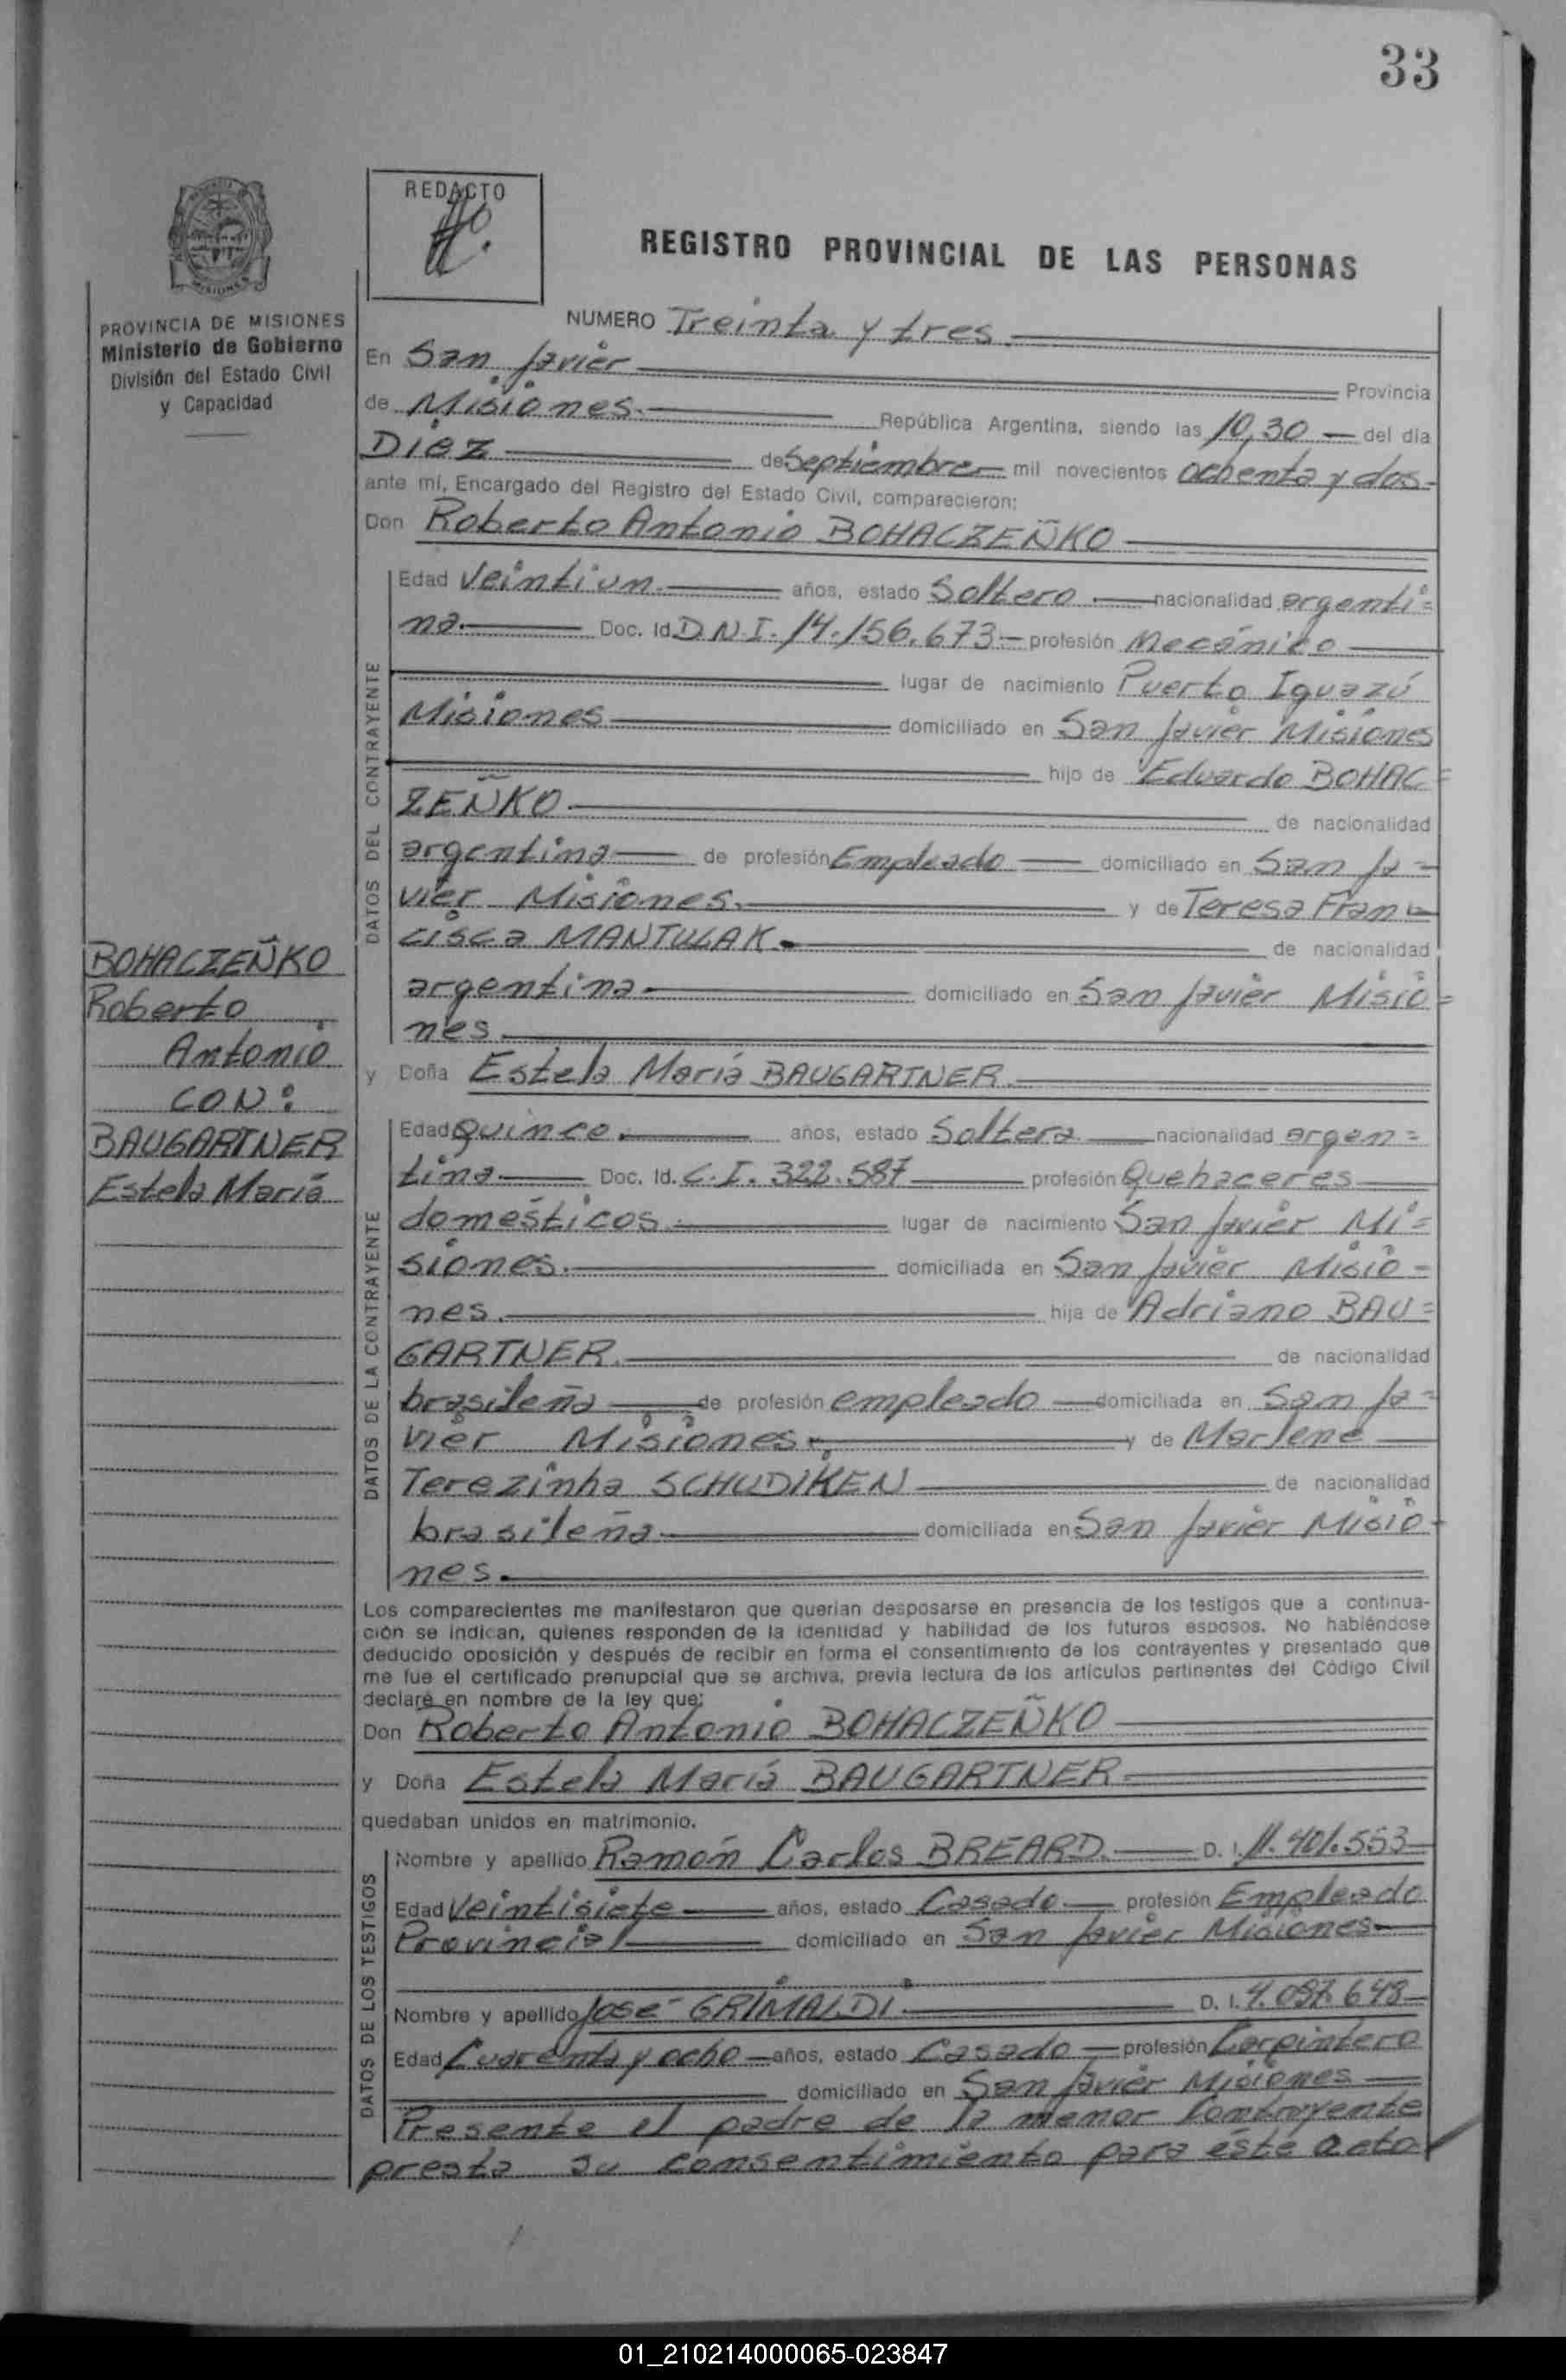 33
REDACTO
REGISTRO PROVINCIAL DE LAS PERSONAS
PROVINCIA DE MISIONES
Ministerio de Gobierno
División del Estado Civil
y Capacidad
NUMERO Treinta y tres.
En San Javier Provincia
de Misiones. República Argentina, siendo las 10,30 del día
Diez de Septiembre mil novecientos ochenta y dos
ante mí, Encargado del Registro del Estado Civil, comparecieron:
Don Roberto Antonio BOHACZEÑKO
DATOS DEL CONTRAYENTE
Edad Veintiun. años, estado Soltero. nacionalidad argenti=
na. Doc. Id. D.N.I. 14.156.673 profesión Mecánico
lugar de nacimiento Puerto Iguazú
Misiones domiciliado en San Javier Misiones
hijo de Eduardo BOHAC=
ZEÑKO. de nacionalidad
argentina de profesión Empleado domiciliado en San Ja=
vier Misiones. y de Teresa Fran=
cisca MANTULAK. de nacionalidad
argentina. domiciliado en San Javier Misio=
nes.
BOHACZEÑKO
Roberto
Antonio
CON:
BAUGARTNER
Estela María
y Doña Estela María BAUGARTNER.
DATOS DE LA CONTRAYENTE
Edad Quince. años, estado Soltera nacionalidad argen=
tina Doc. Id. C.I. 322.587 profesión Quehaceres
domésticos. lugar de nacimiento San Javier Mi=
siones. domiciliada en San Javier Misio=
nes. hija de Adriano BAU=
GARTNER. de nacionalidad
brasileña de profesión empleado domiciliada en San Ja=
vier Misiones. y de Marlene
Terezinha SCHUDIKEN de nacionalidad
brasileña. domiciliada en San Javier Misio
nes.
Los comparecientes me manifestaron que querían desposarse en presencia de los testigos que a continua-
ción se indican, quienes responden de la identidad y habilidad de los futuros esposos. No habiéndose
deducido oposición y después de recibir en forma el consentimiento de los contrayentes y presentado que
me fue el certificado prenupcial que se archiva, previa lectura de los artículos pertinentes del Código Civil
declaré en nombre de la ley que:
Don Roberto Antonio BOHACZEÑKO
y Doña Estela María BAUGARTNER
quedaban unidos en matrimonio.
DATOS DE LOS TESTIGOS
Nombre y apellido Ramón Carlos BREARD. D. I. 11.401.553
Edad Veintisiete años, estado Casado. profesión Empleado
Provincial domiciliado en San Javier Misiones
Nombre y apellido José GRIMALDI. D. I.
Edad Cuarenta y ocho años, estado Casado profesión Carpintero
domiciliado en San Javier Misiones
Presente el padre de la menor Contrayente
presta su consentimiento para éste acto
01_210214000065-023847